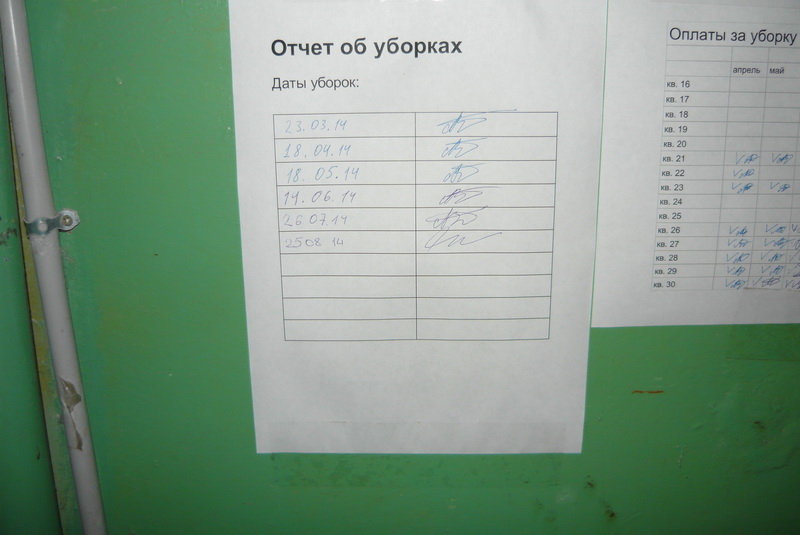 Отчет об уборках
Даты уборок:
23.03.14
18.04.14
18.05.14
14.06.14
26.07.14
25.08 14
Оплаты за уборку
апрель май
кв. 16
кв. 17
кв. 18
кв. 19
кв. 20
кв. 21
кв. 22
кв. 23
кв. 24
кв. 25
кв. 26
кв. 27
кв. 28
кв. 29
кв. 30